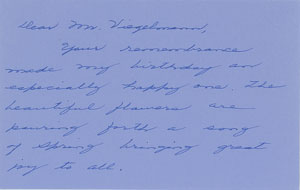 Dear Mr. Viegelmann,
Your remembrance
made my birthday an
especially happy one. The
beautiful flowers are
pouring forth a song
of Spring bringing great
joy to all.